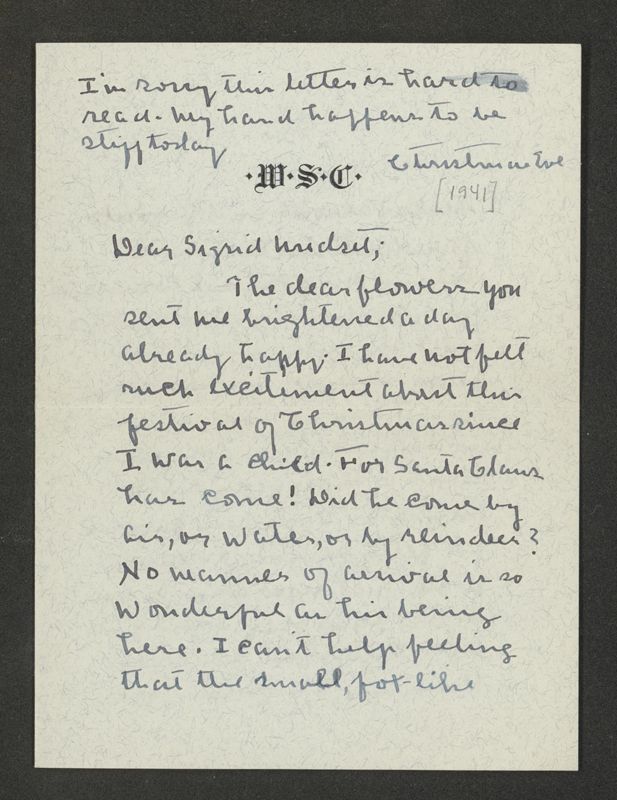 I'm sorry this letter is hard to
read. My hand happens to be
stiff today
Christmas Eve
·W·S·C·
[1941]
Dear Sigrid Undset;
The dear flowers you
sent me brightened a day
already happy. I have not felt
such excitement about this
festival of Christmas since
I was a child. For Santa Claus
has come! Did he come by
air, or water, or by reindeer?
No manner of arrival is so
wonderful as his being
here. I can't help feeling
that the small, fox-like